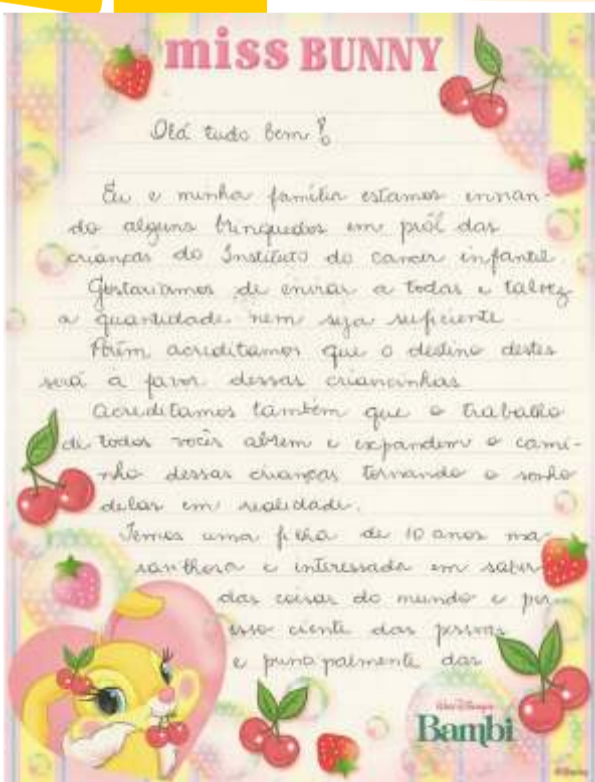 miss BUNNY
Olá tudo bem?
Eu e minha família estamos envian-
do alguns brinquedos em pról das
crianças do Instituto do cancer infantil.
Gostariamos de enviar a todas e talvez
a quantidade nem seja suficiente.
Porém acreditamos que o destino destes
será a favor dessas criancinhas
Acreditamos também que o trabalho
de todos vocês abrem e expandem o cami-
nho dessas crianças tornando o sonho
delas em realidade.
Temos uma filha de 10 anos ma-
ravilhosa e interessada em saber
das coisas do mundo e por
isso ciente das pessoas
e principalmente das
Walt Disney's
Bambi
©Disney